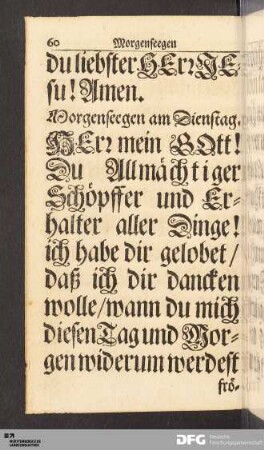 60 Morgenseegen
du liebster HErr JE-
su! Amen.
Morgenseegen am Dienstag.
HErr mein GOtt!
Du Allmächtiger
Schöpffer und Er-
halter aller Dinge!
ich habe dir gelobet/
daß ich dir dancken
wolle/wann du mich
diesen Tag und Mor-
gen widerum werdest
frö-
DFG Deutsche
Forschungsgemeinschaft